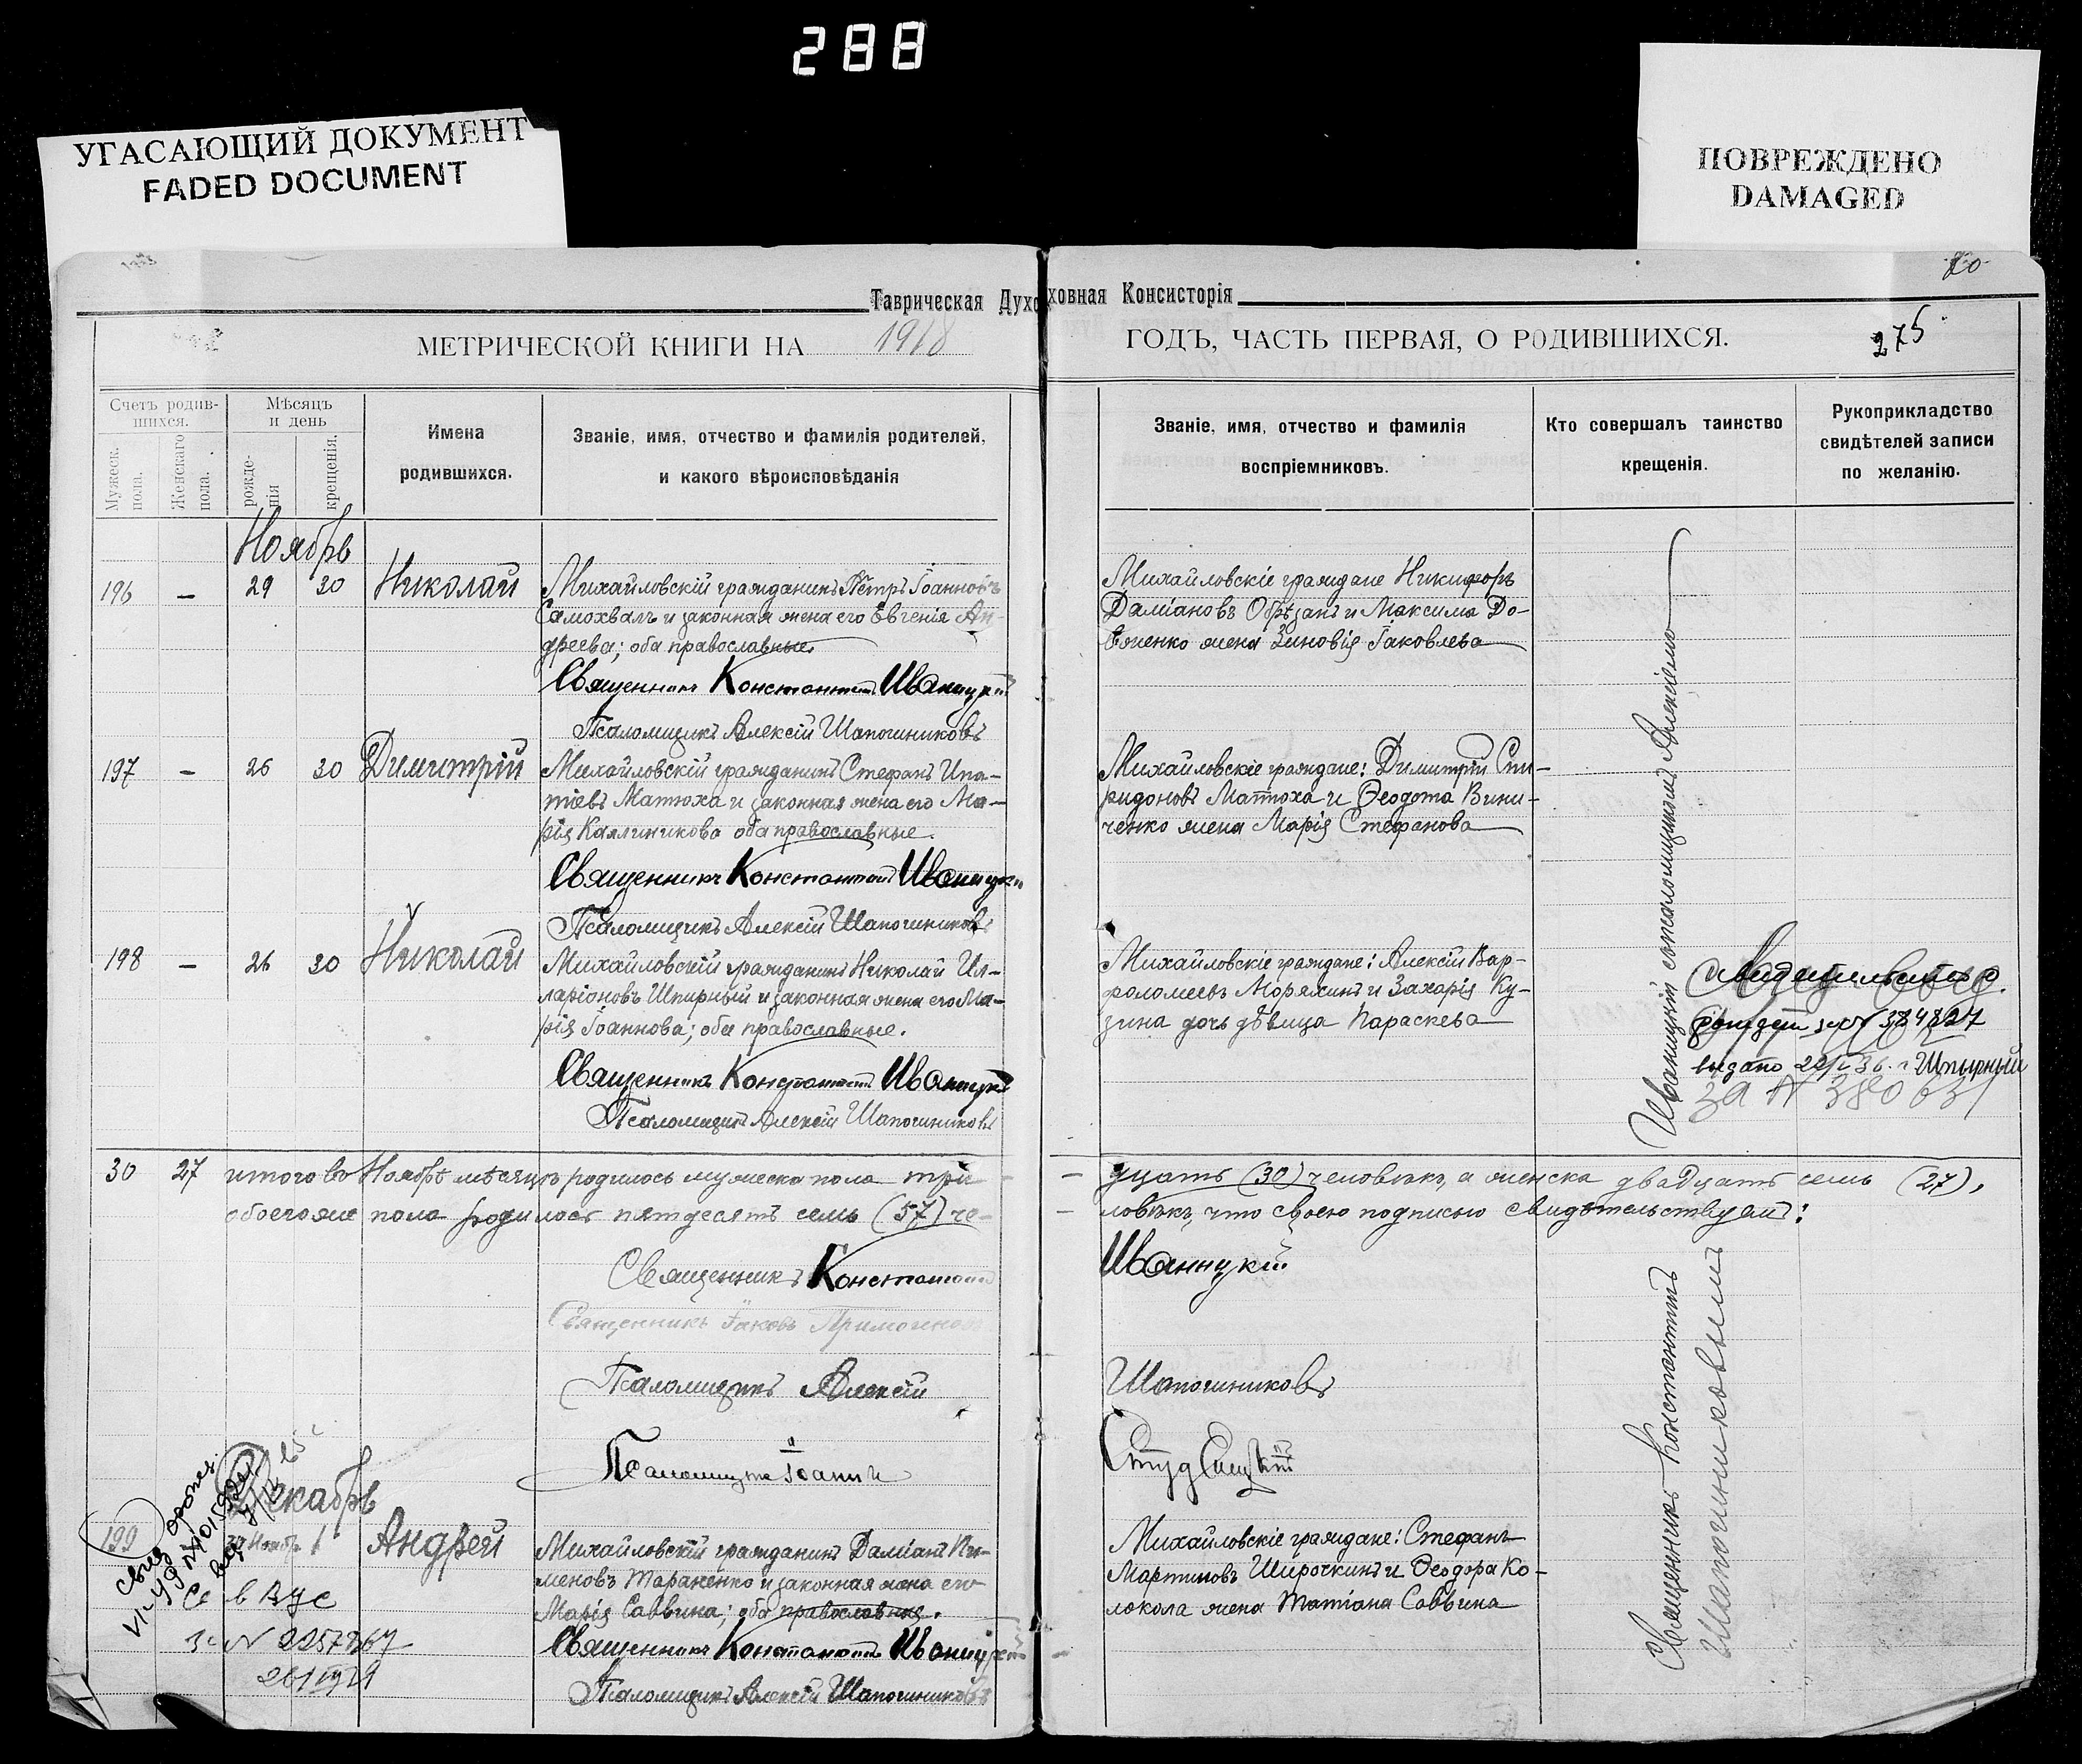 288
УГАСАЮЩИЙ ДОКУМЕНТ
FADED DOCUMENT
ПОВРЕЖДЕНО
DAMAGED
Таврическая Духовная Консисторія
МЕТРИЧЕСКОЙ КНИГИ НА 1918
ГОДЪ, ЧАСТЬ ПЕРВАЯ, О РОДИВШИХСЯ.
275
Счетъ родив-
шихся.
Мужеск. пола.
Женскаго пола.
Мѣсяцъ
и день
рожде-
нія
крещенія.
Имена
родившихся.
Званіе, имя, отчество и фамилія родителей,
и какого вѣроисповѣданія
Званіе, имя, отчество и фамилія
воспріемниковъ.
Кто совершалъ таинство
крещенія.
Рукоприкладство
свидѣтелей записи
по желанію.
Ноябрь
196 — 29 30 Николай
Михайловскій гражданинъ Петръ Іоанновъ
Самохвалъ и законная жена его Евгенія Ан-
дреева; оба православные.
Священникъ Константинъ Иваницкій
Псаломщикъ Алексій Шапошниковъ
Михайловскіе граждане Никифоръ
Даміановъ Обрѣзанъ и Максима До-
вженко жена Зиновія Іаковлева
197 — 26 30 Димитрій
Михайловскій гражданинъ Стефанъ Ипа-
тіевъ Матюха и законная жена его Ма-
рія Каллиникова оба православные.
Священникъ Константинъ Иваницкій
Псаломщикъ Алексій Шапошниковъ
Михайловскіе граждане: Димитрій Спи-
ридоновъ Матюха и Ѳеодота Вини-
ченко жена Марія Стефанова
198 — 26 30 Николай
Михайловскій гражданинъ Николай Ил-
ларіоновъ Шпирный и законная жена его Ма-
рія Іоаннова; оба православные.
Священникъ Константинъ Иваницкій
Псаломщикъ Алексій Шапошниковъ
Михайловскіе граждане: Алексій Вар-
фоломеевъ Моряхинъ и Захарія Ку-
зина дочь дѣвица Параскева
384827
выдано Шпырный
за №
30 27 итого въ Ноябрѣ мѣсяцѣ родилось мужеска пола три-
дцать (30) человѣкъ, а женска двадцать семь (27),
обоего же пола родилось пятдесятъ семь (57) че-
ловѣкъ, что своею подписью свидѣтельствуемъ:
Священникъ Константинъ Иваницкій
Священникъ Іаковъ
Псаломщикъ Алексій Шапошниковъ
Псаломщикъ Іоаннъ
Декабрь
199 Ноябр 1 Андрей
Михайловскій гражданинъ Даміанъ Пи-
меновъ Тараненко и законная жена его
Марія Саввина; оба православные.
Священникъ Константинъ Иваницкій
Псаломщикъ Алексій Шапошниковъ
Михайловскіе граждане: Стефанъ
Мартиновъ Широчкинъ и Ѳеодора Ко-
локола жена Татіана Саввина
№ 2257867
Священникъ Константинъ Иваницкій съ псаломщикомъ Алексіемъ
Шапошниковымъ